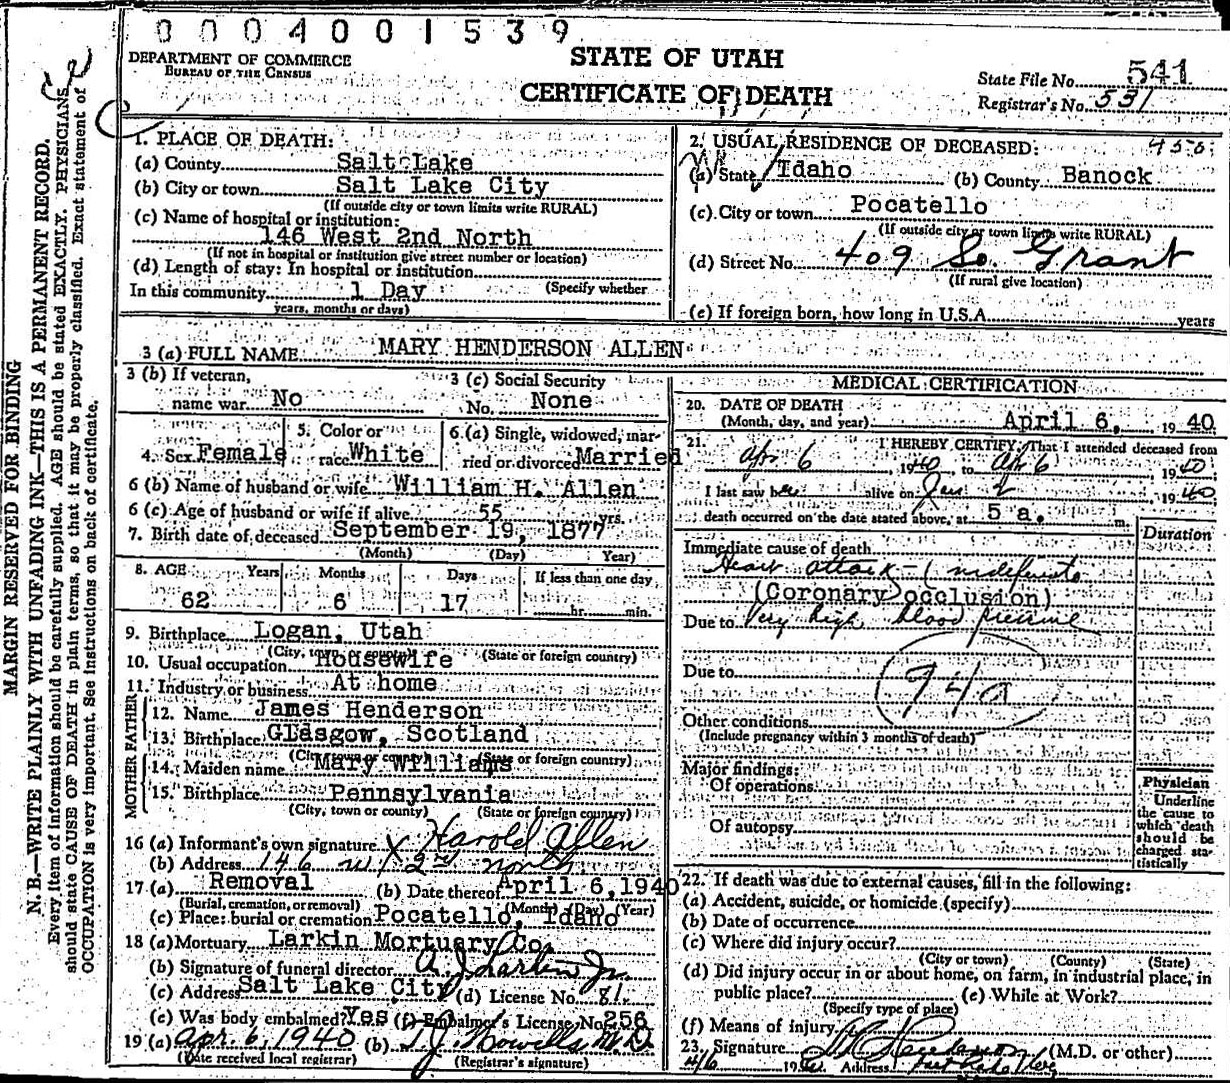 0004001539
DEPARTMENT OF COMMERCE
BUREAU OF THE CENSUS
STATE OF UTAH
CERTIFICATE OF DEATH
State File No. 541
Registrar's No. 531
MARGIN RESERVED FOR BINDING
N. B.—WRITE PLAINLY WITH UNFADING INK—THIS IS A PERMANENT RECORD.
Every item of information should be carefully supplied. AGE should be stated EXACTLY. PHYSICIANS
should state CAUSE OF DEATH in plain terms, so that it may be properly classified. Exact statement of
OCCUPATION is very important. See instructions on back of certificate.
1. PLACE OF DEATH:
(a) County Salt Lake
(b) City or town Salt Lake City
(If outside city or town limits write RURAL)
(c) Name of hospital or institution:
146 West 2nd North
(If not in hospital or institution give street number or location)
(d) Length of stay: In hospital or institution
In this community 1 Day (Specify whether
years, months or days)
2. USUAL RESIDENCE OF DECEASED:
(a) State Idaho (b) County Banock
(c) City or town Pocatello
(If outside city or town limits write RURAL)
(d) Street No. 409 So. Grant
(If rural give location)
(e) If foreign born, how long in U.S.A. years
3 (a) FULL NAME MARY HENDERSON ALLEN
3 (b) If veteran,
name war No
3 (c) Social Security
No. None
4. Sex Female
5. Color or
race White
6.(a) Single, widowed, mar-
ried or divorced Married
6 (b) Name of husband or wife William H. Allen
6 (c) Age of husband or wife if alive 55 yrs.
7. Birth date of deceased September 19, 1877
(Month) (Day) Year)
8. AGE Years Months Days If less than one day
62 6 17 hr. min.
9. Birthplace Logan, Utah
(City, town or county) (State or foreign country)
10. Usual occupation Housewife
11. Industry or business At home
FATHER
12. Name James Henderson
13. Birthplace Glasgow, Scotland
(City, town or county) (State or foreign country)
MOTHER
14. Maiden name Mary Williams
15. Birthplace Pennsylvania
(City, town or county) (State or foreign country)
16 (a) Informant's own signature X Harold Allen
(b) Address 146 W 2nd north
17 (a) Removal (b) Date thereof April 6, 1940
(Burial, cremation, or removal) (Month) (Day) (Year)
(c) Place: burial or cremation Pocatello, Idaho
18 (a) Mortuary Larkin Mortuary Co.
(b) Signature of funeral director A. J. Larkin Jr.
(c) Address Salt Lake City (d) License No. 81.
(e) Was body embalmed? Yes (f) Embalmer's License No. 256
19 (a) Apr. 6, 1940 (b) T. J. Howells M.D.
(Date received local registrar) (Registrar's signature)
MEDICAL CERTIFICATION
20. DATE OF DEATH
(Month, day, and year) April 6, 1940
21. I HEREBY CERTIFY, That I attended deceased from
Apr 6, 1940, to Apr 6, 1940.
I last saw her alive on Jan 2 1940
death occurred on the date stated above, at 5 a. m.
Duration
Immediate cause of death
Heart attack - (indefinite
(Coronary occlusion)
Due to Very high blood pressure
Due to
94a
Other conditions
(Include pregnancy within 3 months of death)
Major findings:
Of operations
Of autopsy
Physician
Underline
the cause to
which death
should be
charged sta-
tistically
22. If death was due to external causes, fill in the following:
(a) Accident, suicide, or homicide (specify)
(b) Date of occurrence
(c) Where did injury occur?
(City or town) (County) (State)
(d) Did injury occur in or about home, on farm, in industrial place, in
public place? (e) While at Work?
(Specify type of place)
(f) Means of injury
23. Signature (M.D. or other)
4/6 19 Address